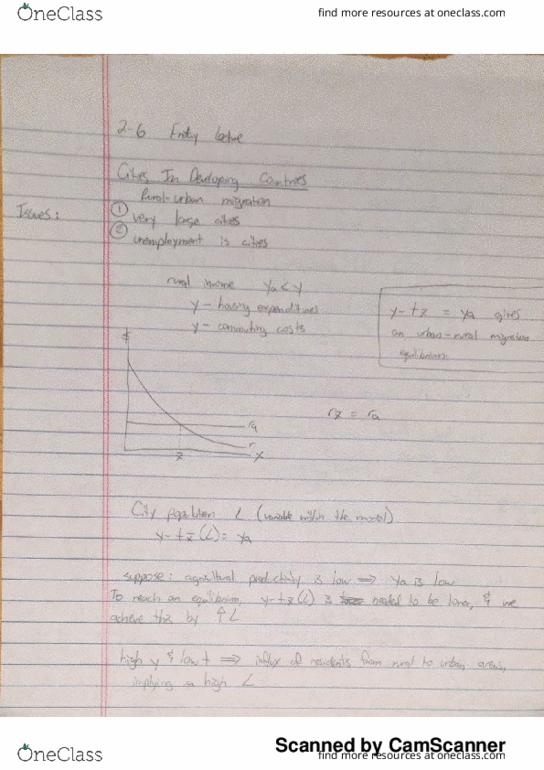 OneClass find more resources at oneclass.com
2-6
Cities In Developing Countries
Rural-urban migration
Issues: ① very large cities
② unemployment is cities
rural income ya < y
y - housing expenditures
y - commuting costs
y - tz = ya gives
an urban-rural migration
equilibrium
$
ra
r
z x
rz = ra
City population L (variable within the model)
y - tz(L) = ya
suppose: agricultural productivity is low ⟹ ya is low
To reach an equilibrium, y-tz(L) is needed to be lower, & we
achieve this by ↑L
high y & low t ⟹ influx of residents from rural to urban areas,
implying a high L
Scanned by CamScanner
OneClass find more resources at oneclass.com